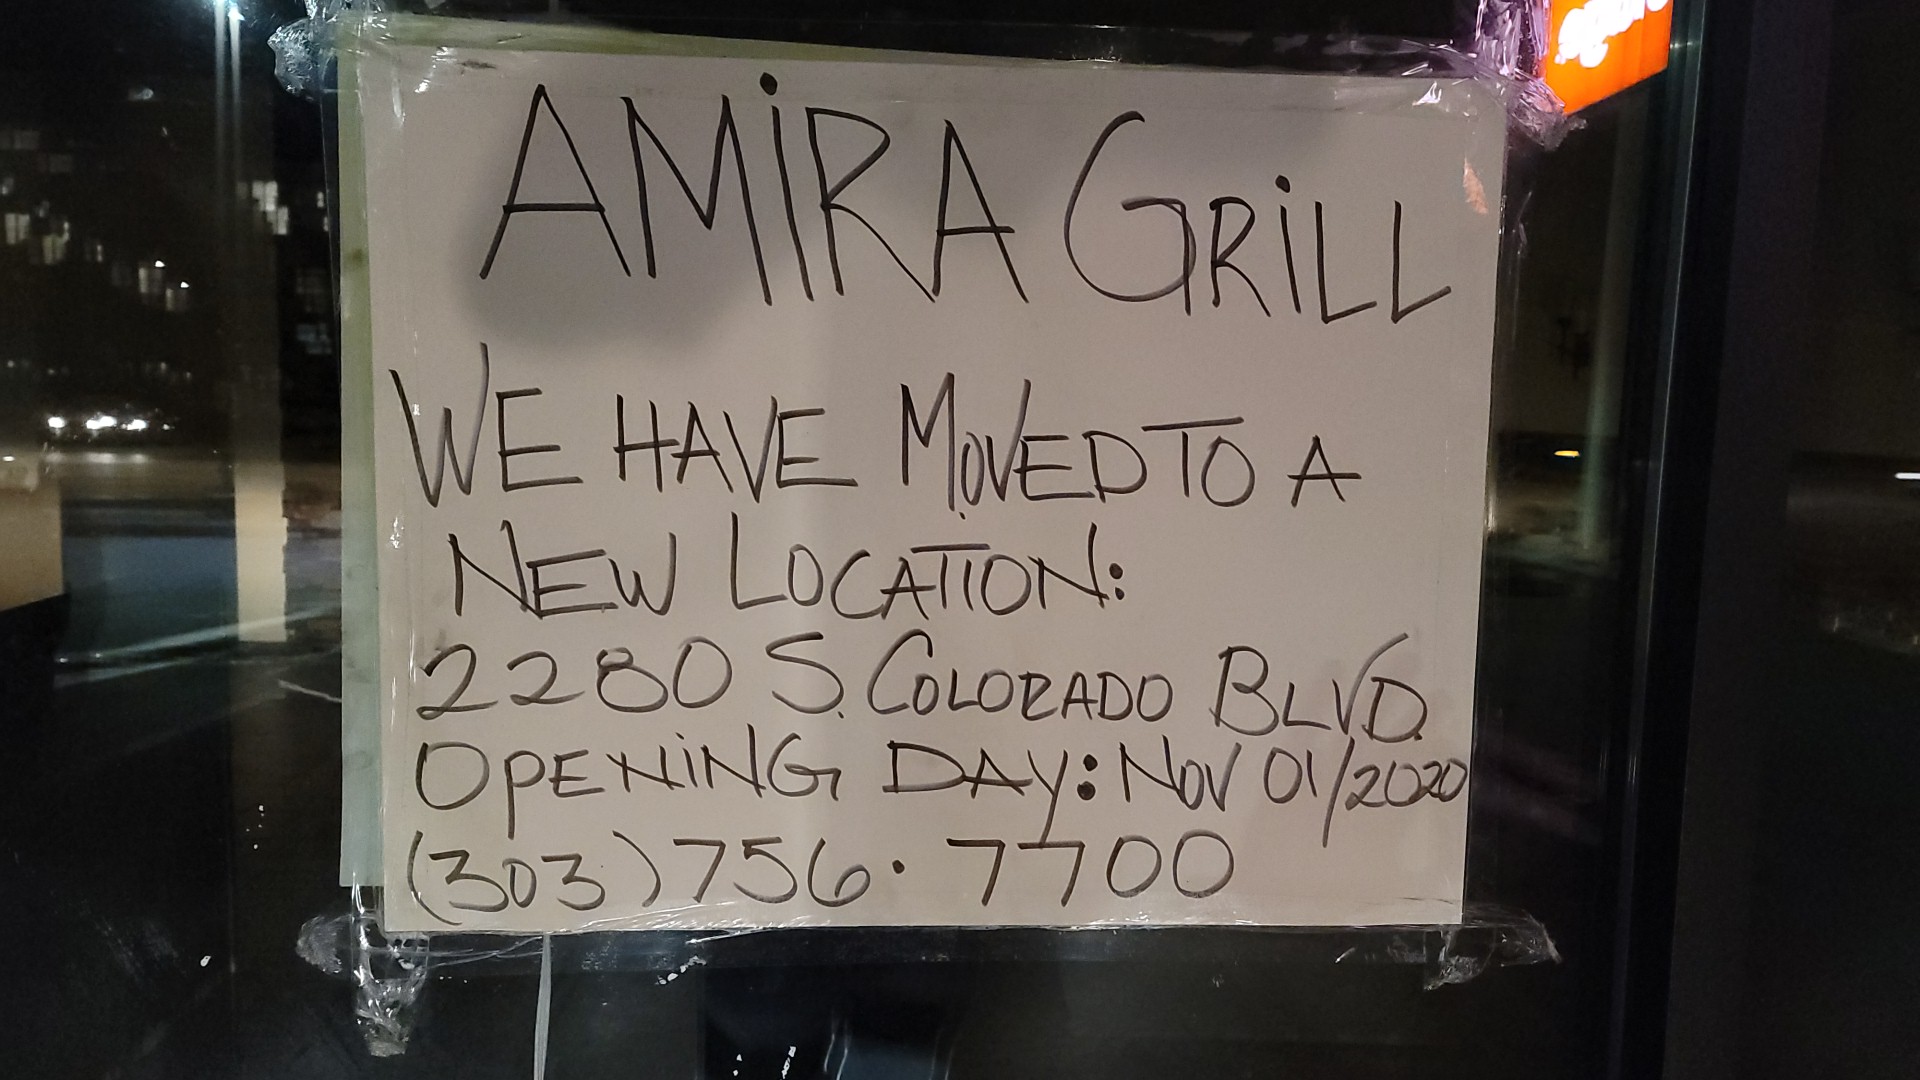 AMiRA GRiLL
WE HAVE MOVED TO A
NEW LOCATION:
2280 S. COLORADO BLVD.
OPENiNG DAY: NOV 01/2020
(303) 756. 7700